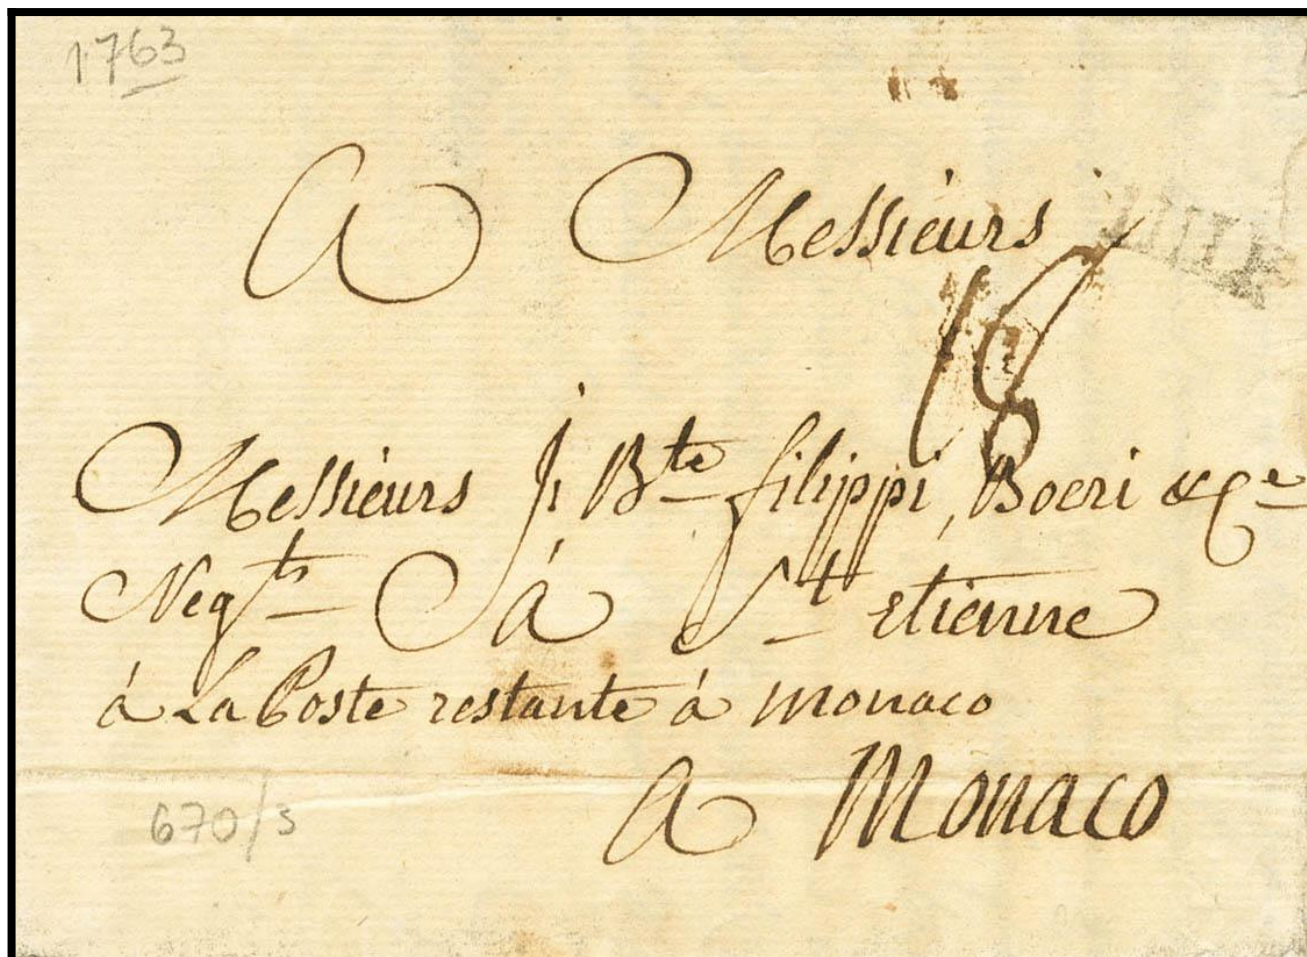 1763
A Messieurs
18
Messieurs J. Bte filippi, Boeri & Ce
Negts A St etienne
á La Poste restante á monaco
A Monaco
670/3